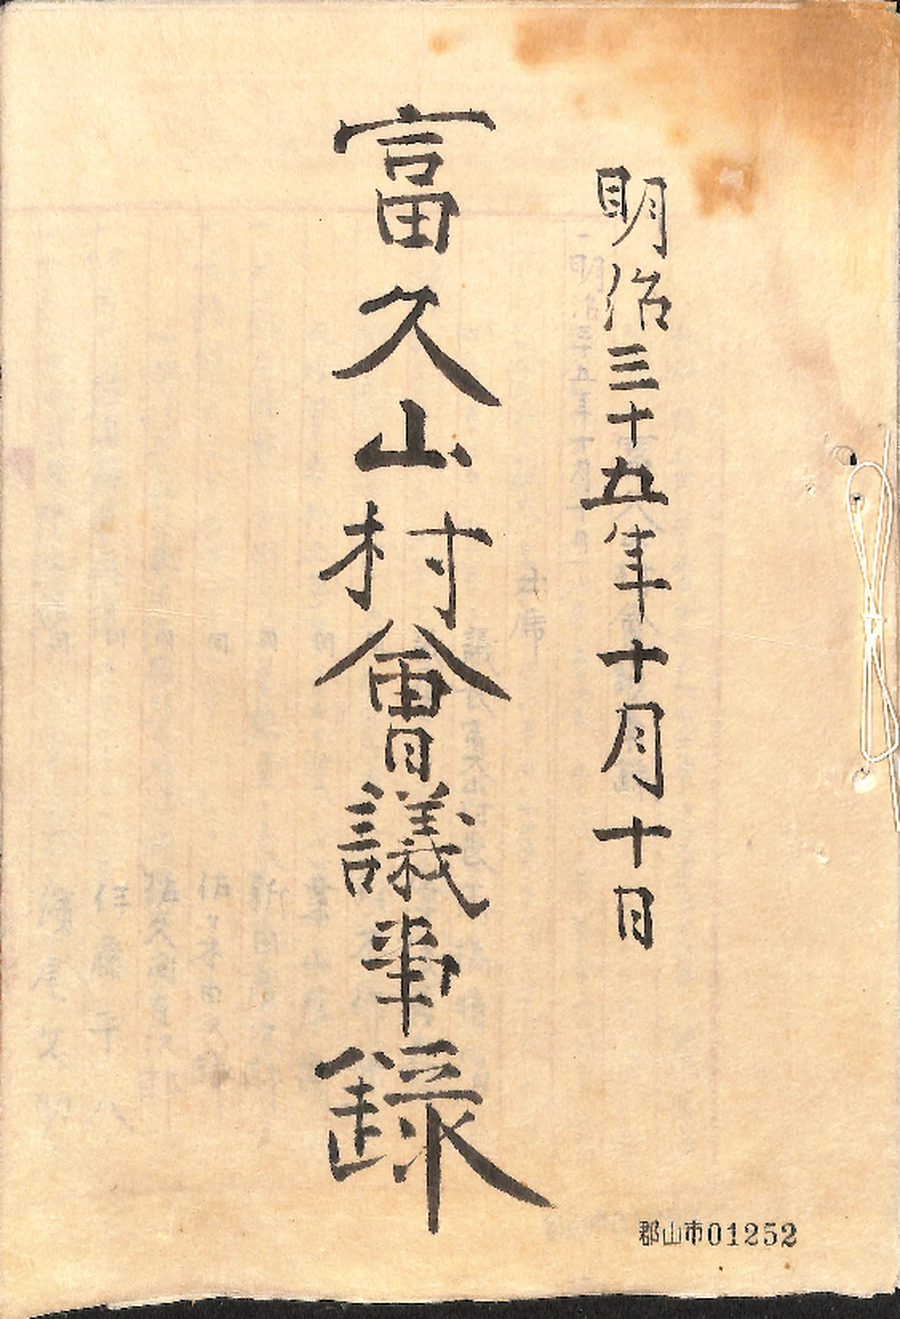 明治三十五年十月十日
富久山村會議事録
郡山市01252